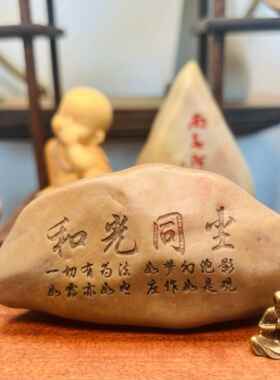 南无阿
和光同尘
一切有为法 如梦幻泡影
如露亦如电 应作如是观